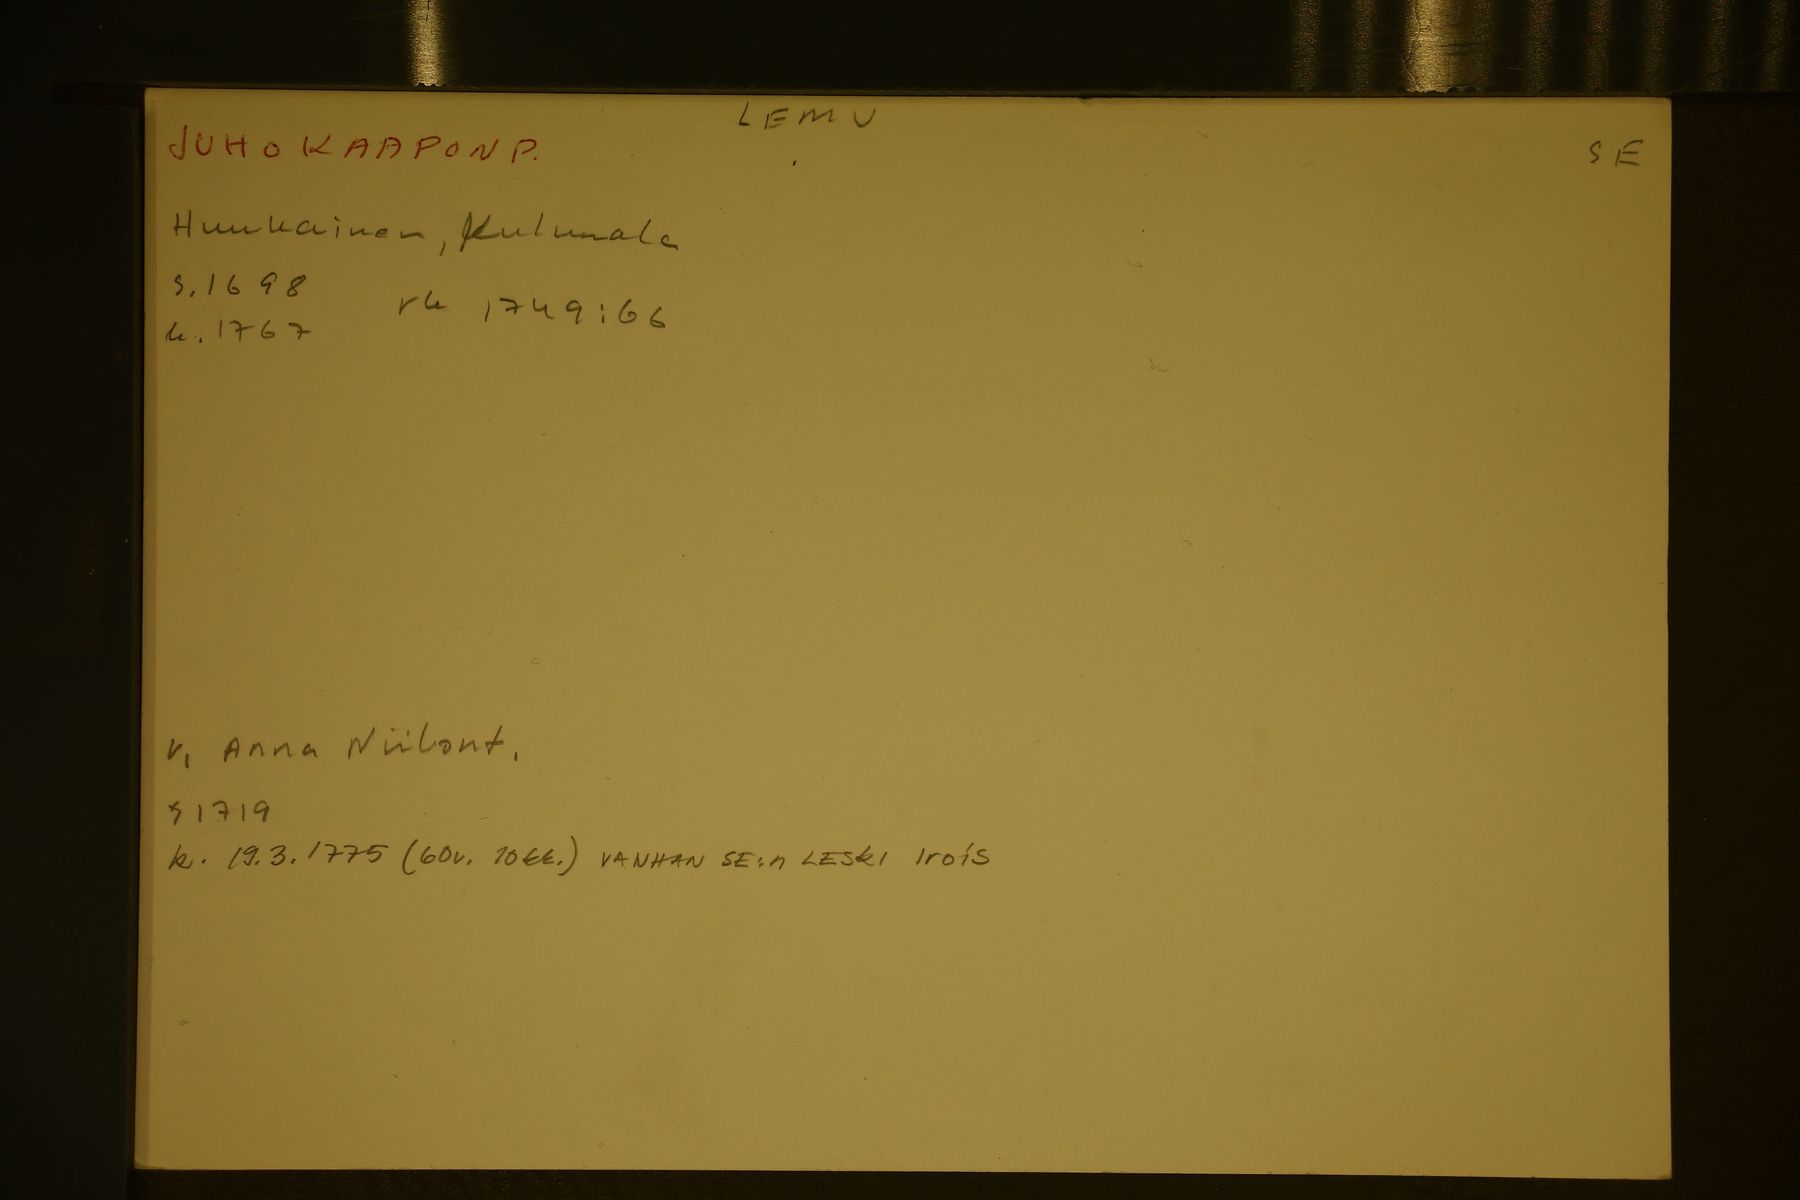 LEMU
JUHO KAAPONP.
SE
Hunkainen, Kulmala
s. 1698
rk 1749:66
k. 1767
v. Anna Niilont.
s 1719
k. 19.3.1775 (60v. 10kk.) VANHAN SE:n LESKI Irois